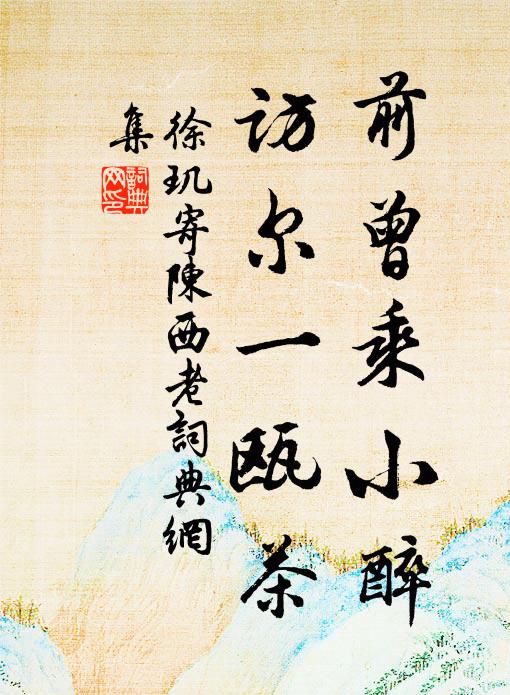 前曾乘小醉
访尔一瓯茶
徐玑寄陳西老詞典網
集
詞典网印